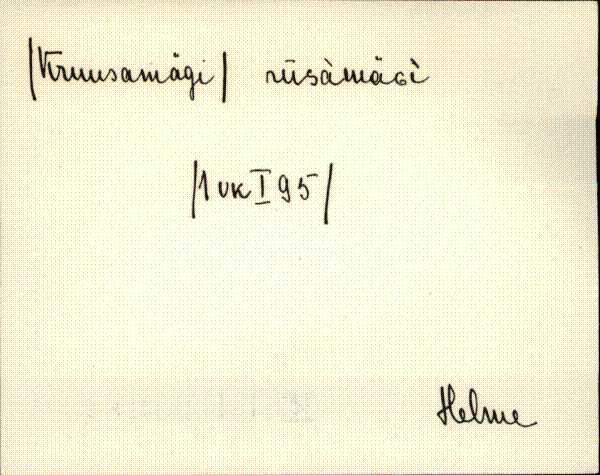 /Kruusamägi/ rüsàmäɢì
/1 vk I 95/
Helme